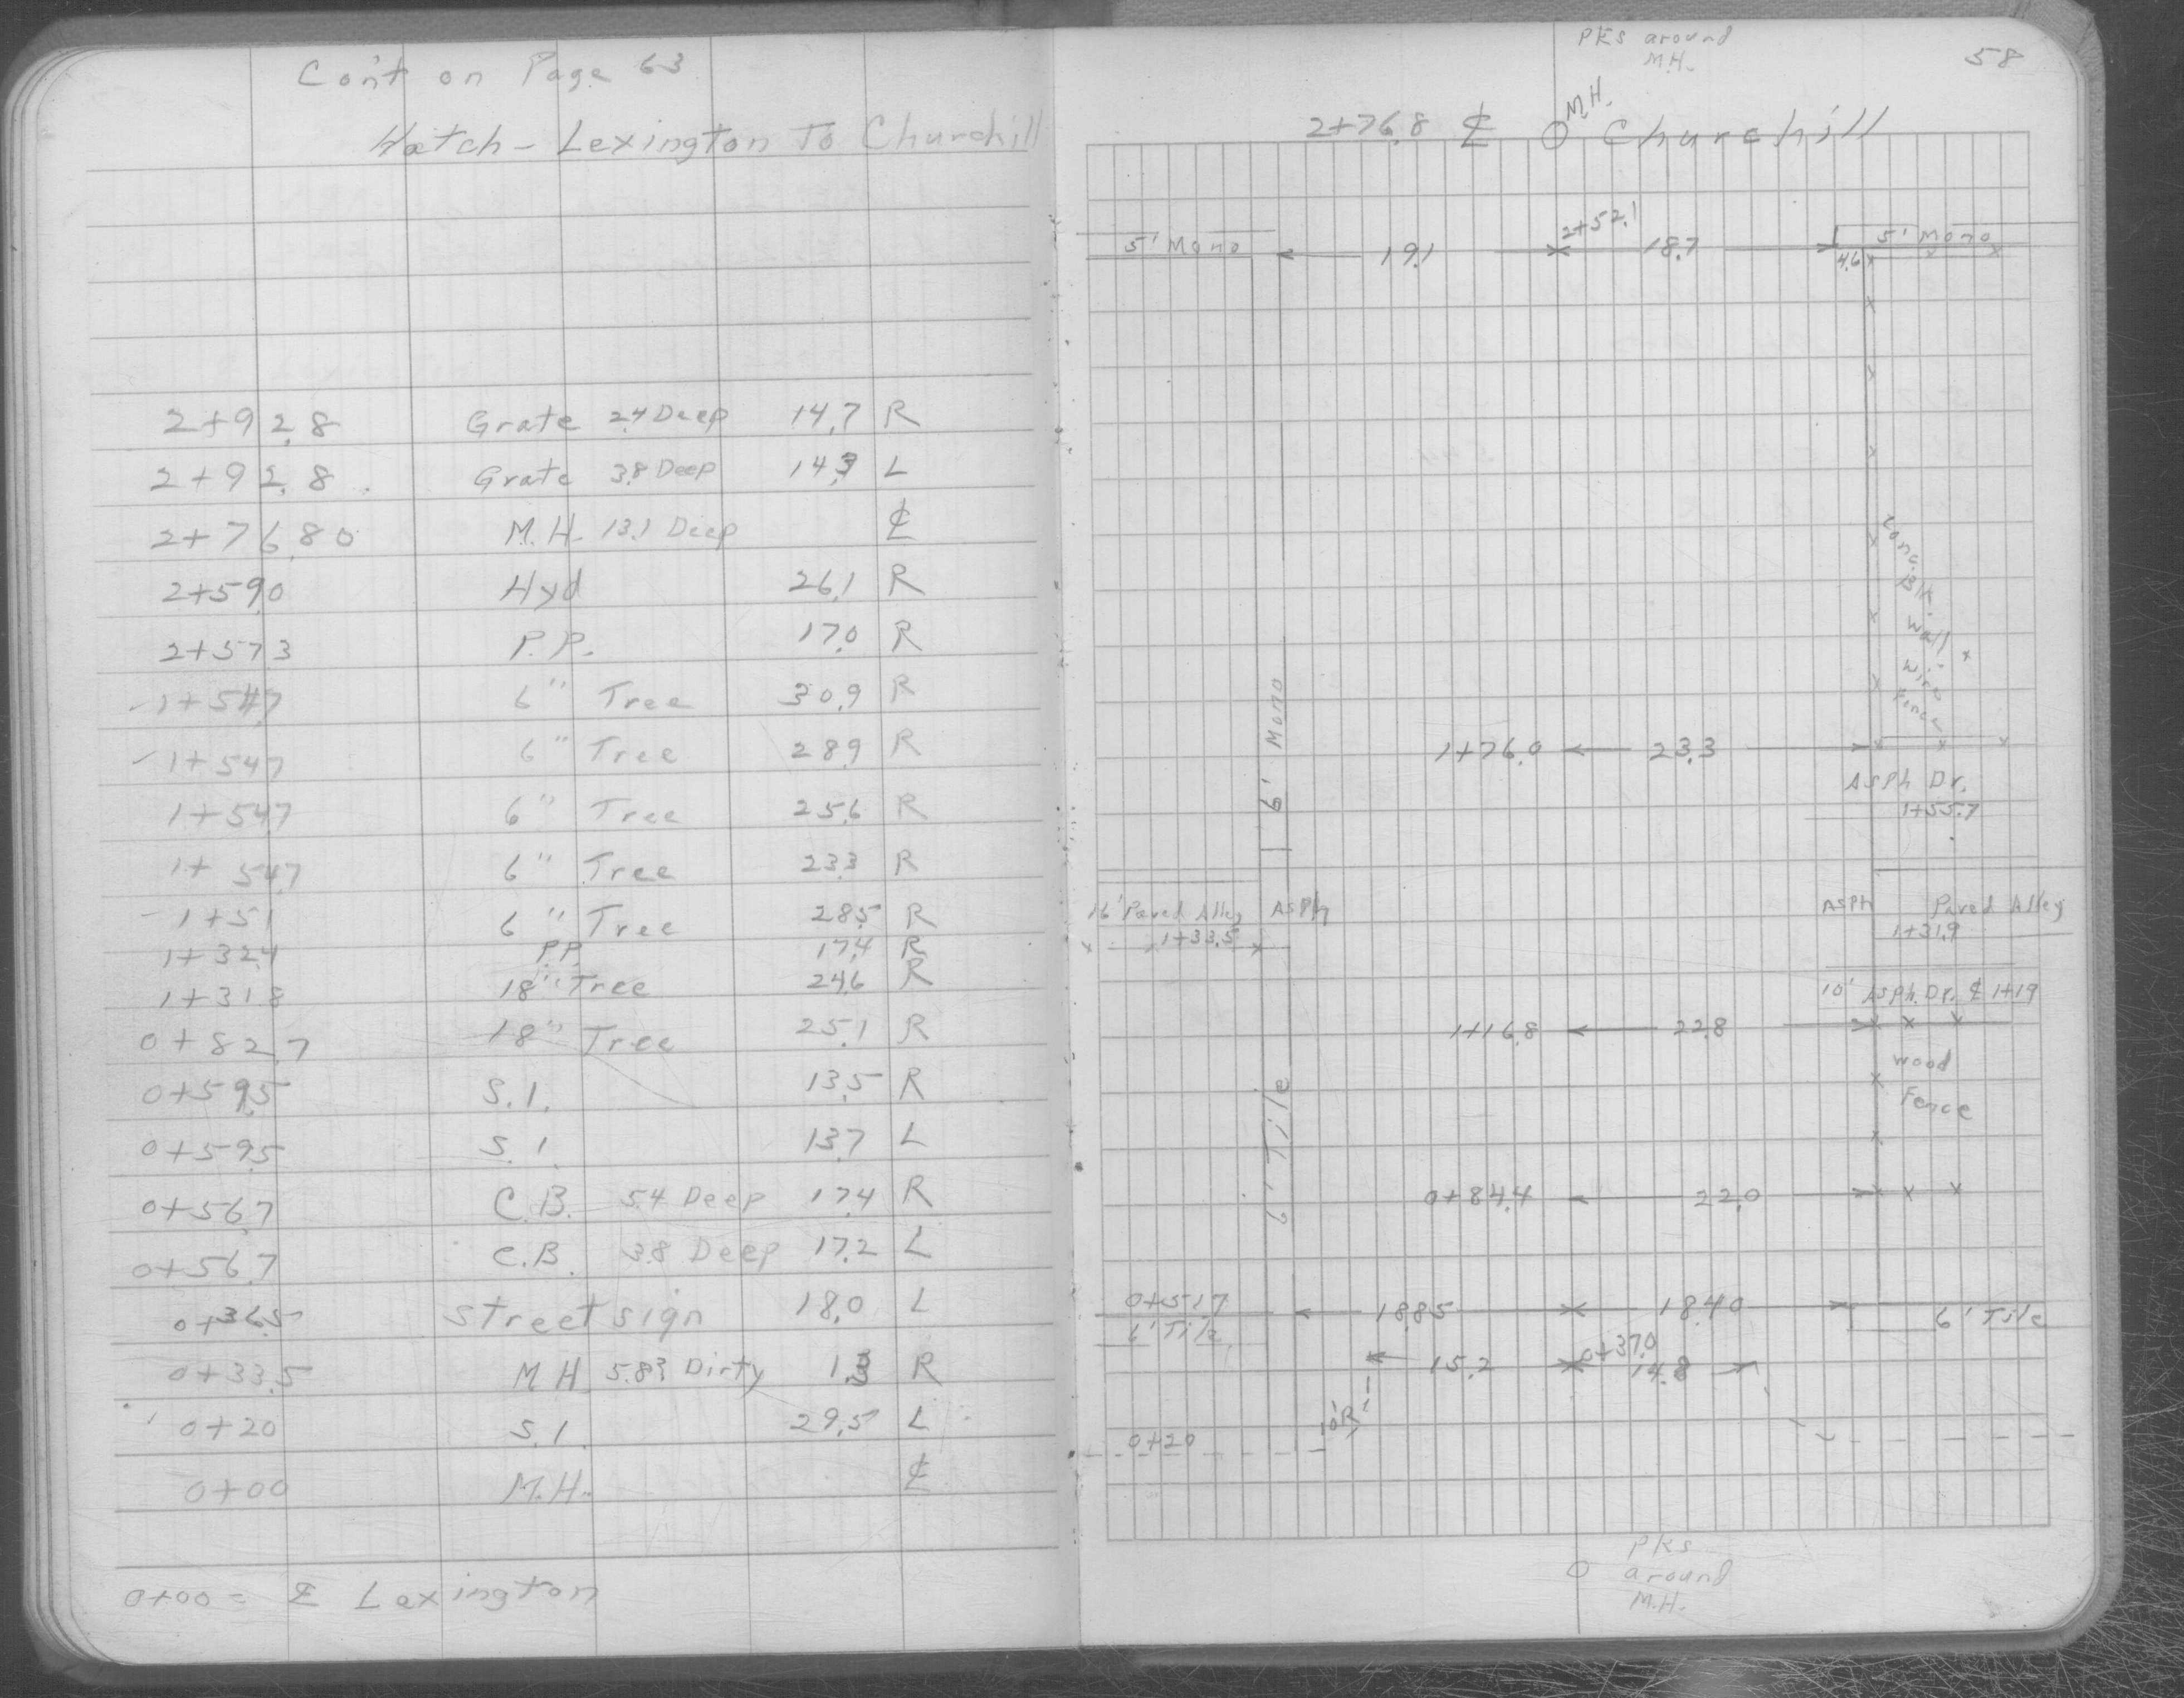 Con't on Page 63
Hatch - Lexington To Churchill
2+92.8 Grate 2.4 Deep 14.7 R
2+92.8 Grate 3.8 Deep 14.3 L
2+76.80 M.H. 13.1 Deep ℄
2+59.0 Hyd 26.1 R
2+57.3 P.P. 17.0 R
1+54.7 6" Tree 30.9 R
1+54.7 6" Tree 28.9 R
1+54.7 6" Tree 25.6 R
1+54.7 6" Tree 23.3 R
1+51 6" Tree 28.5 R
1+32.4 P.P. 17.4 R
1+31.8 18" Tree 24.6 R
0+82.7 18" Tree 25.1 R
0+59.5 S.I. 13.5 R
0+59.5 S.I. 13.7 L
0+56.7 C.B. 5.4 Deep 17.4 R
0+56.7 C.B. 3.8 Deep 17.2 L
0+36.5 Street sign 18.0 L
0+33.5 M.H. 5.8? Dirty 1.3 R
0+20 S.I. 29.5 L
0+00 M.H. ℄
0+00 = ℄ Lexington
PKS around
M.H.
58
2+76.8 ℄ M.H. Churchill
2+52.1
5' Mono 19.1 18.7 5' Mono
4.6
Conc.
Blk.
Wall
Wire
Fence
6' Mono
1+76.0 23.3
Asph Dr.
1+55.7
16' Paved Alley Asph Asph Paved Alley
1+33.5 1+31.9
10' Asph. Dr. ℄ 1+19
1+16.8 22.8
Wood
Fence
6' Tile
0+84.4 22.0
0+51.7 18.85 18.40 6' Tile
6' Tile
0+37.0
15.2 14.8
10'R
0+20
PKS
around
M.H.